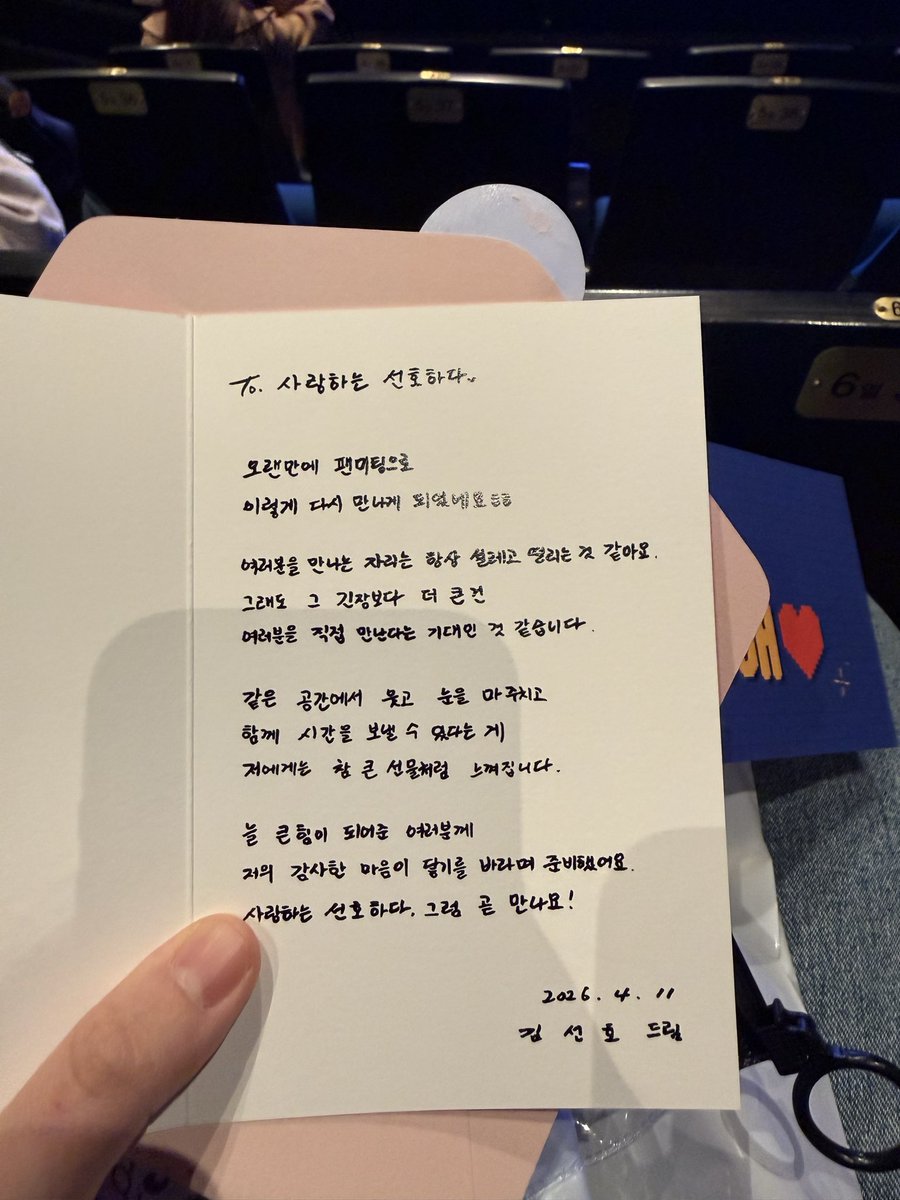 To. 사랑하는 선호하다.
오랜만에 팬미팅으로
이렇게 다시 만나게 되었네요ㅎㅎ
여러분을 만나는 자리는 항상 설레고 떨리는 것 같아요.
그래도 그 긴장보다 더 큰건
여러분을 직접 만난다는 기대인 것 같습니다.
같은 공간에서 웃고 눈을 마주치고
함께 시간을 보낼 수 있다는 게
저에게는 참 큰 선물처럼 느껴집니다.
늘 큰힘이 되어준 여러분께
저의 감사한 마음이 닿기를 바라며 준비했어요.
사랑하는 선호하다. 그럼 곧 만나요!
2026. 4. 11
김 선 호 드림
6열